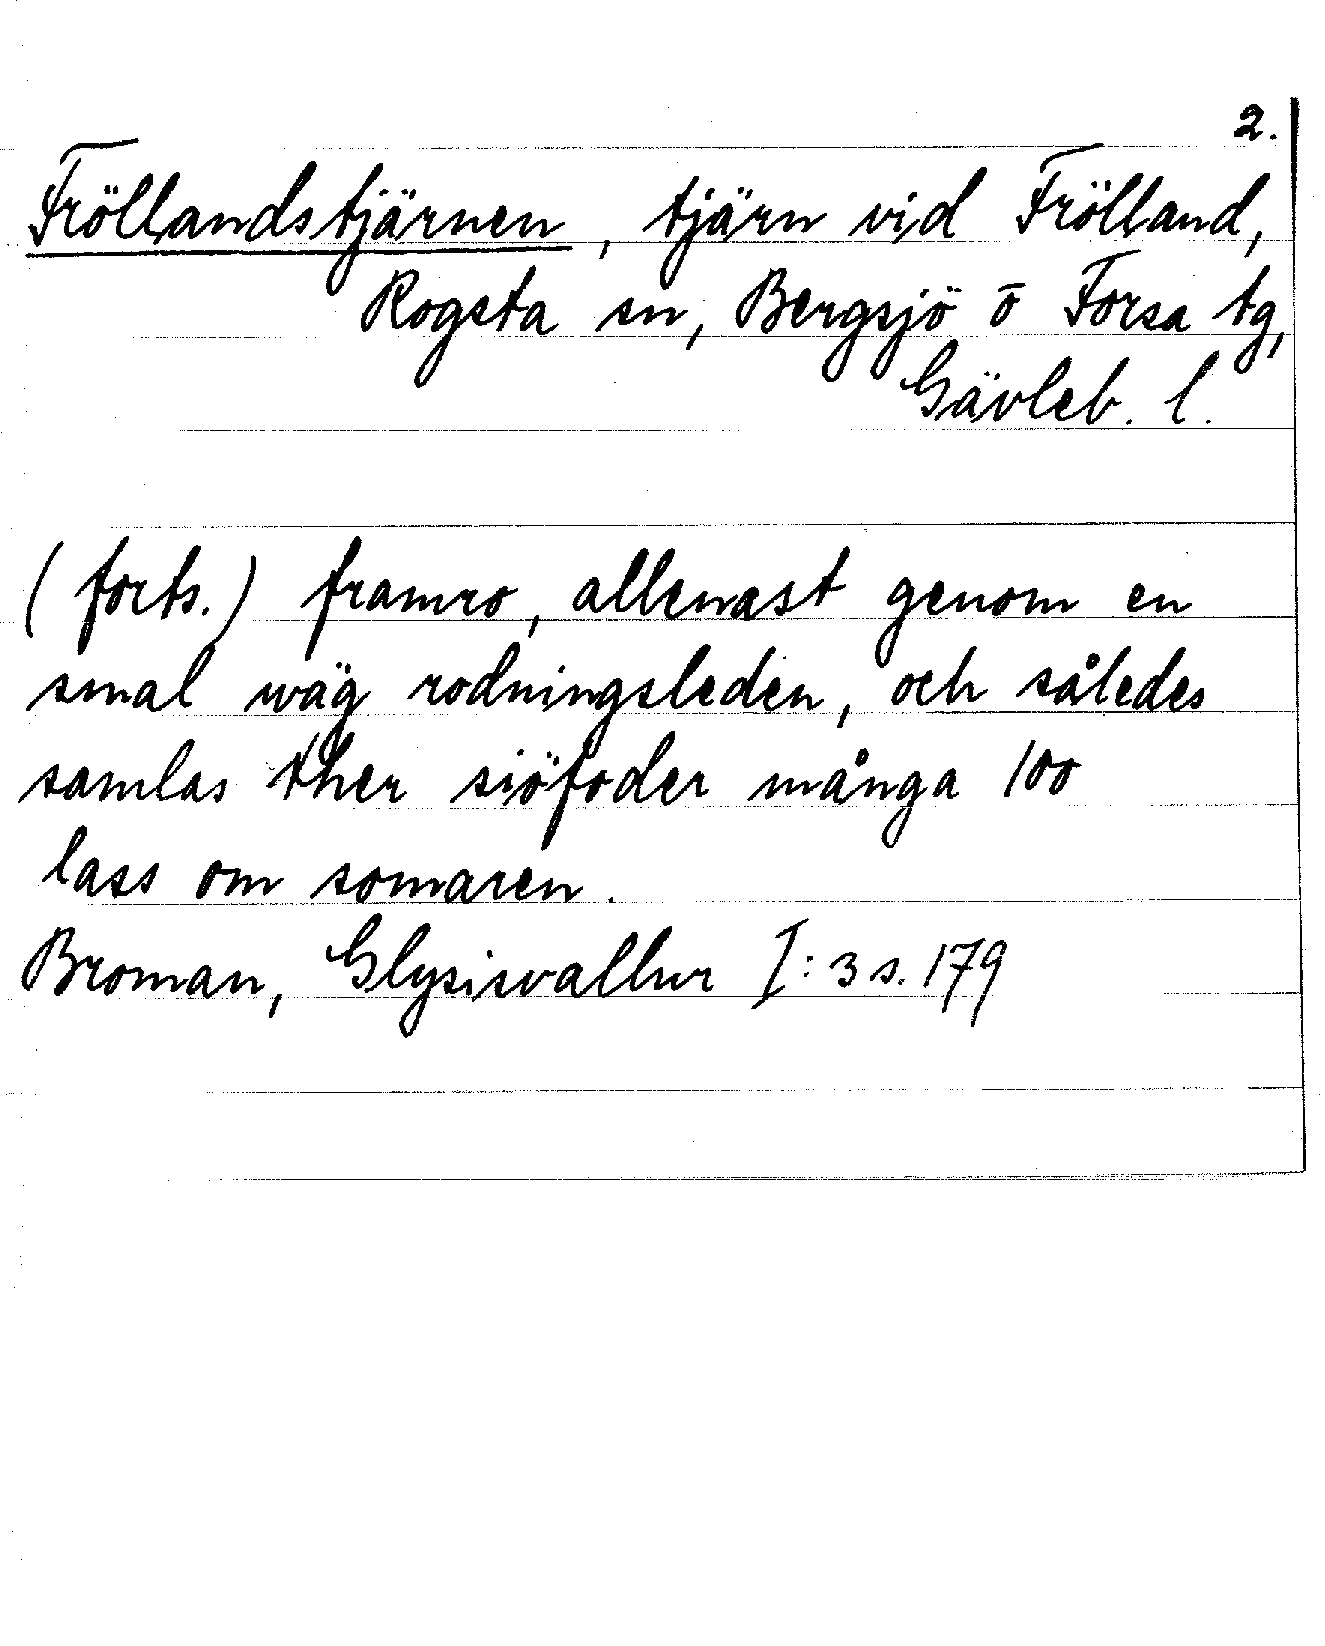 2.
Fröllandstjärnen, tjärn vid Frölland,
Rogsta sn, Bergsjö o Forsa tg,
Gävleb. l.
(forts.) framro, allenast genom en
smal wäg rodningsleden, och således
samlas ther siöfoder många 100
lass om somaren.
Broman, Glysisvallur I:3 s. 179